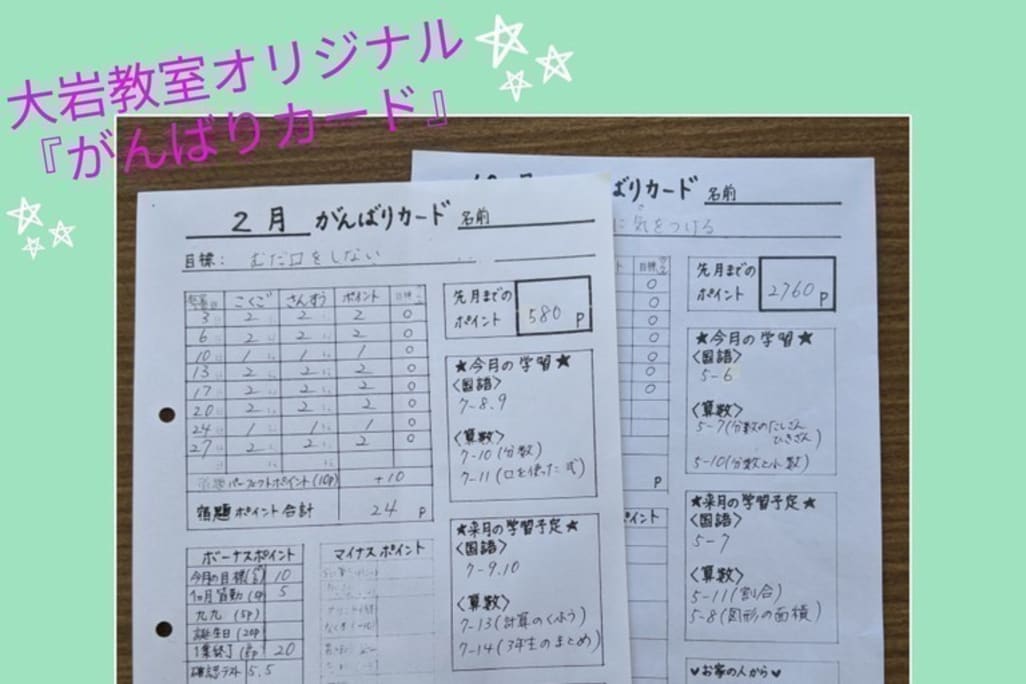 大岩教室オリジナル
『がんばりカード』
2月 がんばりカード 名前
目標：むだ口をしない
こくご さんすう ポイント 目標
3 2 2 2 0
6 2 2 2 0
10 1 1 1 0
13 2 2 2 0
17 2 2 2 0
20 2 2 2 0
24 1 1 1 0
27 2 2 2 0
パーフェクトポイント(10p) +10
宿題ポイント合計 24 p
ボーナスポイント
今月の目標 10
1ヶ月皆勤 5
九九 (5p)
誕生日(20p
1集終了 20
確認テスト 5.5
マイナスポイント
先月までの
ポイント 580 p
★今月の学習★
〈国語〉
7-8.9
〈算数〉
7-10(分数)
7-11(口を使った式)
★来月の学習予定★
〈国語〉
7-9.10
〈算数〉
7-13(計算のくふう)
7-14(3年生のまとめ)
ばりカード 名前
に気をつける
目標
0
0
0
0
0
0
0
p
ポイント
先月までの
ポイント 2760 p
★今月の学習★
〈国語〉
5-6
〈算数〉
5-7(分数のたしざん
ひきざん)
5-10(分数と小数)
★来月の学習予定★
〈国語〉
5-7
〈算数〉
5-11(割合)
5-8(図形の面積)
♥お家の人から♥